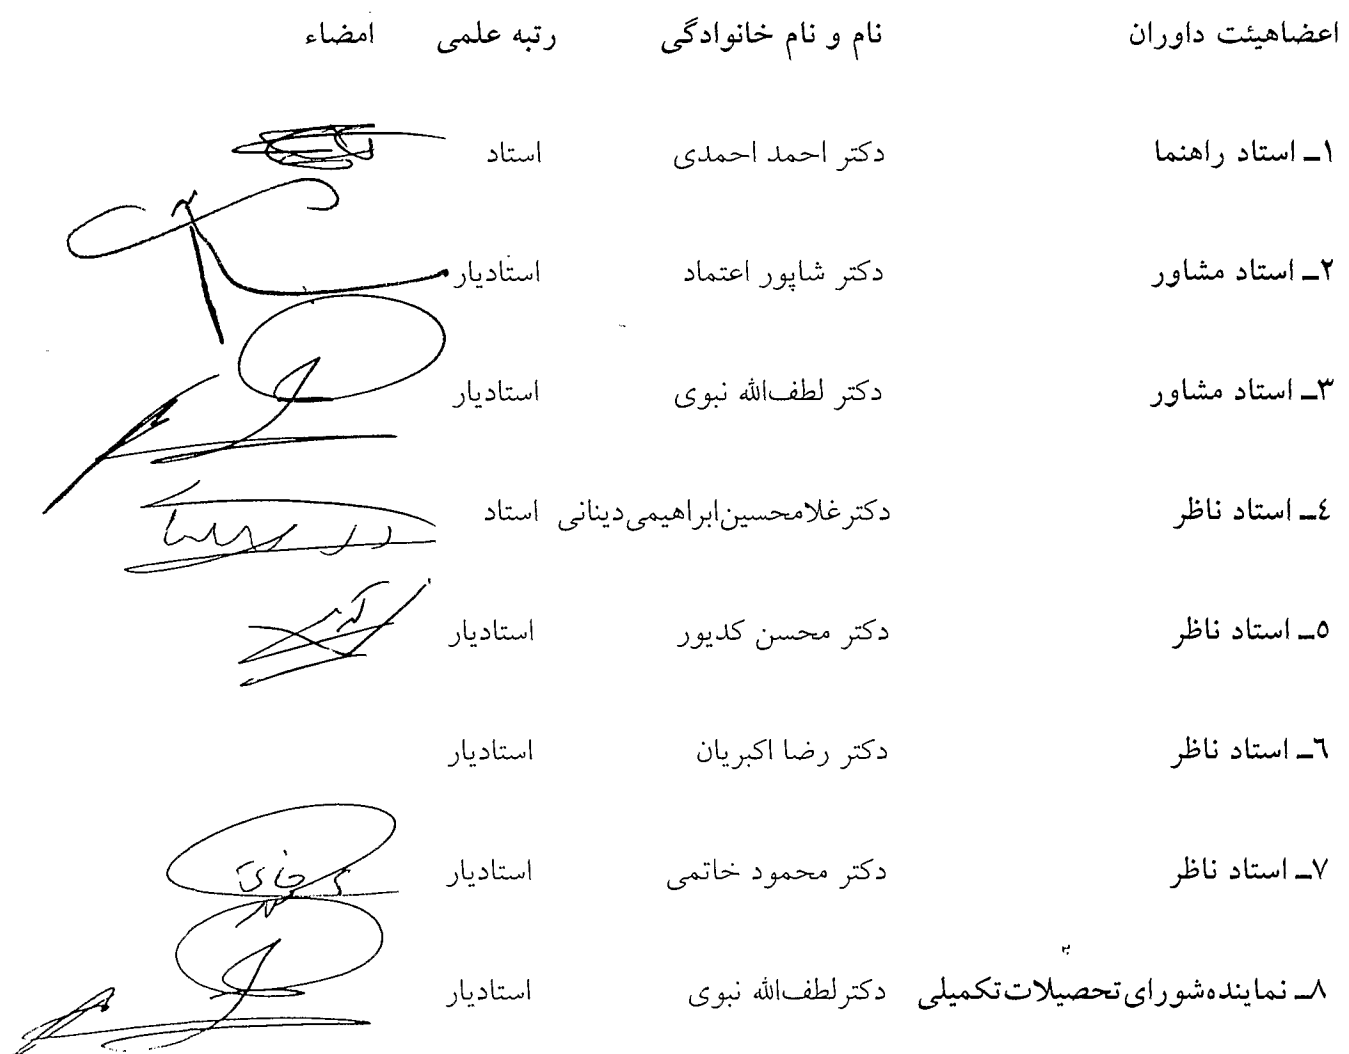 اعضاهیئت داوران نام و نام خانوادگی رتبه علمی امضاء
١ـ استاد راهنما دکتر احمد احمدی استاد
٢ـ استاد مشاور دکتر شاپور اعتماد استادیار
٣ـ استاد مشاور دکتر لطف‌الله نبوی استادیار
٤ـ استاد ناظر دکترغلامحسین‌ابراهیمی‌دینانی استاد
٥ـ استاد ناظر دکتر محسن کدیور استادیار
٦ـ استاد ناظر دکتر رضا اکبریان استادیار
٧ـ استاد ناظر دکتر محمود خاتمی استادیار
٨ـ نماینده‌شورای‌تحصیلات‌تکمیلی دکترلطف‌الله نبوی استادیار